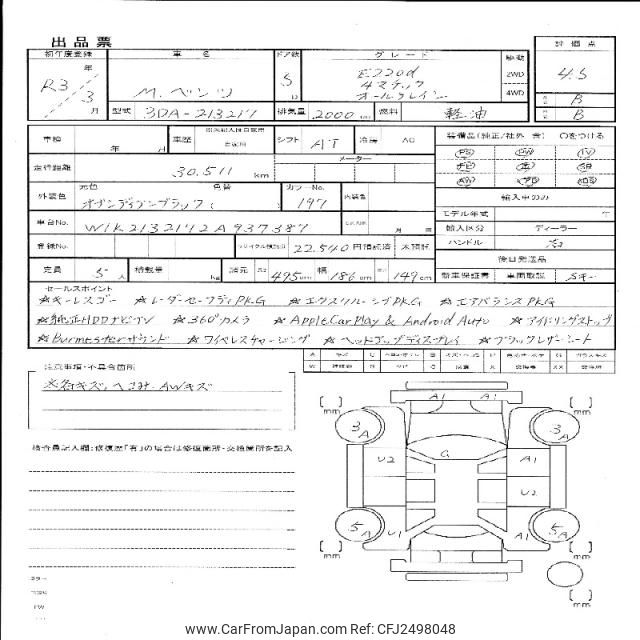 出品票
初年度登録 車名 ドア数 グレード 駆動 評価点
R3年 3月 M.ベンツ 5D E220d 4マチック オールテレイン 2WD 4WD 4.5
B
B
型式 3DA-213217 排気量 2000 燃料 軽油
車検 年 月 車歴 自家用 シフト AT 冷房 AC 装備品(純正/社外 含) ○をつける
走行距離 30,511 km メーター
外装色 元色 色替 カラーNo. 内装色 輸入車のみ
オブシディアンブラック ( 197
モデル年式 年
車台No. W1K2132172A937387 月 輸入区分 ディーラー
登録No. リサイクル預託金 22,540 円預託済 未預託 ハンドル 右
後日発送品
定員 5人 積載量 kg 諸元 長さ 495cm 幅 186cm 高さ 149cm 新車保証書 車両取説 Sキー
セールスポイント
☆キーレスゴー ☆レーダーセーフティPKG ☆エクスクルーシブPKG ☆エアバランスPKG
☆純正HDDナビTV ☆360°カメラ ☆AppleCarPlay & Android Auto ☆アイドリングストップ
☆Burmesterサウンド ☆ワイヤレスチャージング ☆ヘッドアップディスプレイ ☆ブラックレザーシート
注意事項・不具合箇所
※各キズ、ヘコミ、AWキズ
検査員記入欄:修復歴「有」の場合は修復箇所・交換箇所を記入
[ ] mm A1 A1 [ ] mm
3A 3A
U2 G A1
U2
5A U1 A1 5A
[ ] mm [ ] mm
[ ] mm
www.CarFromJapan.com Ref: CFJ2498048